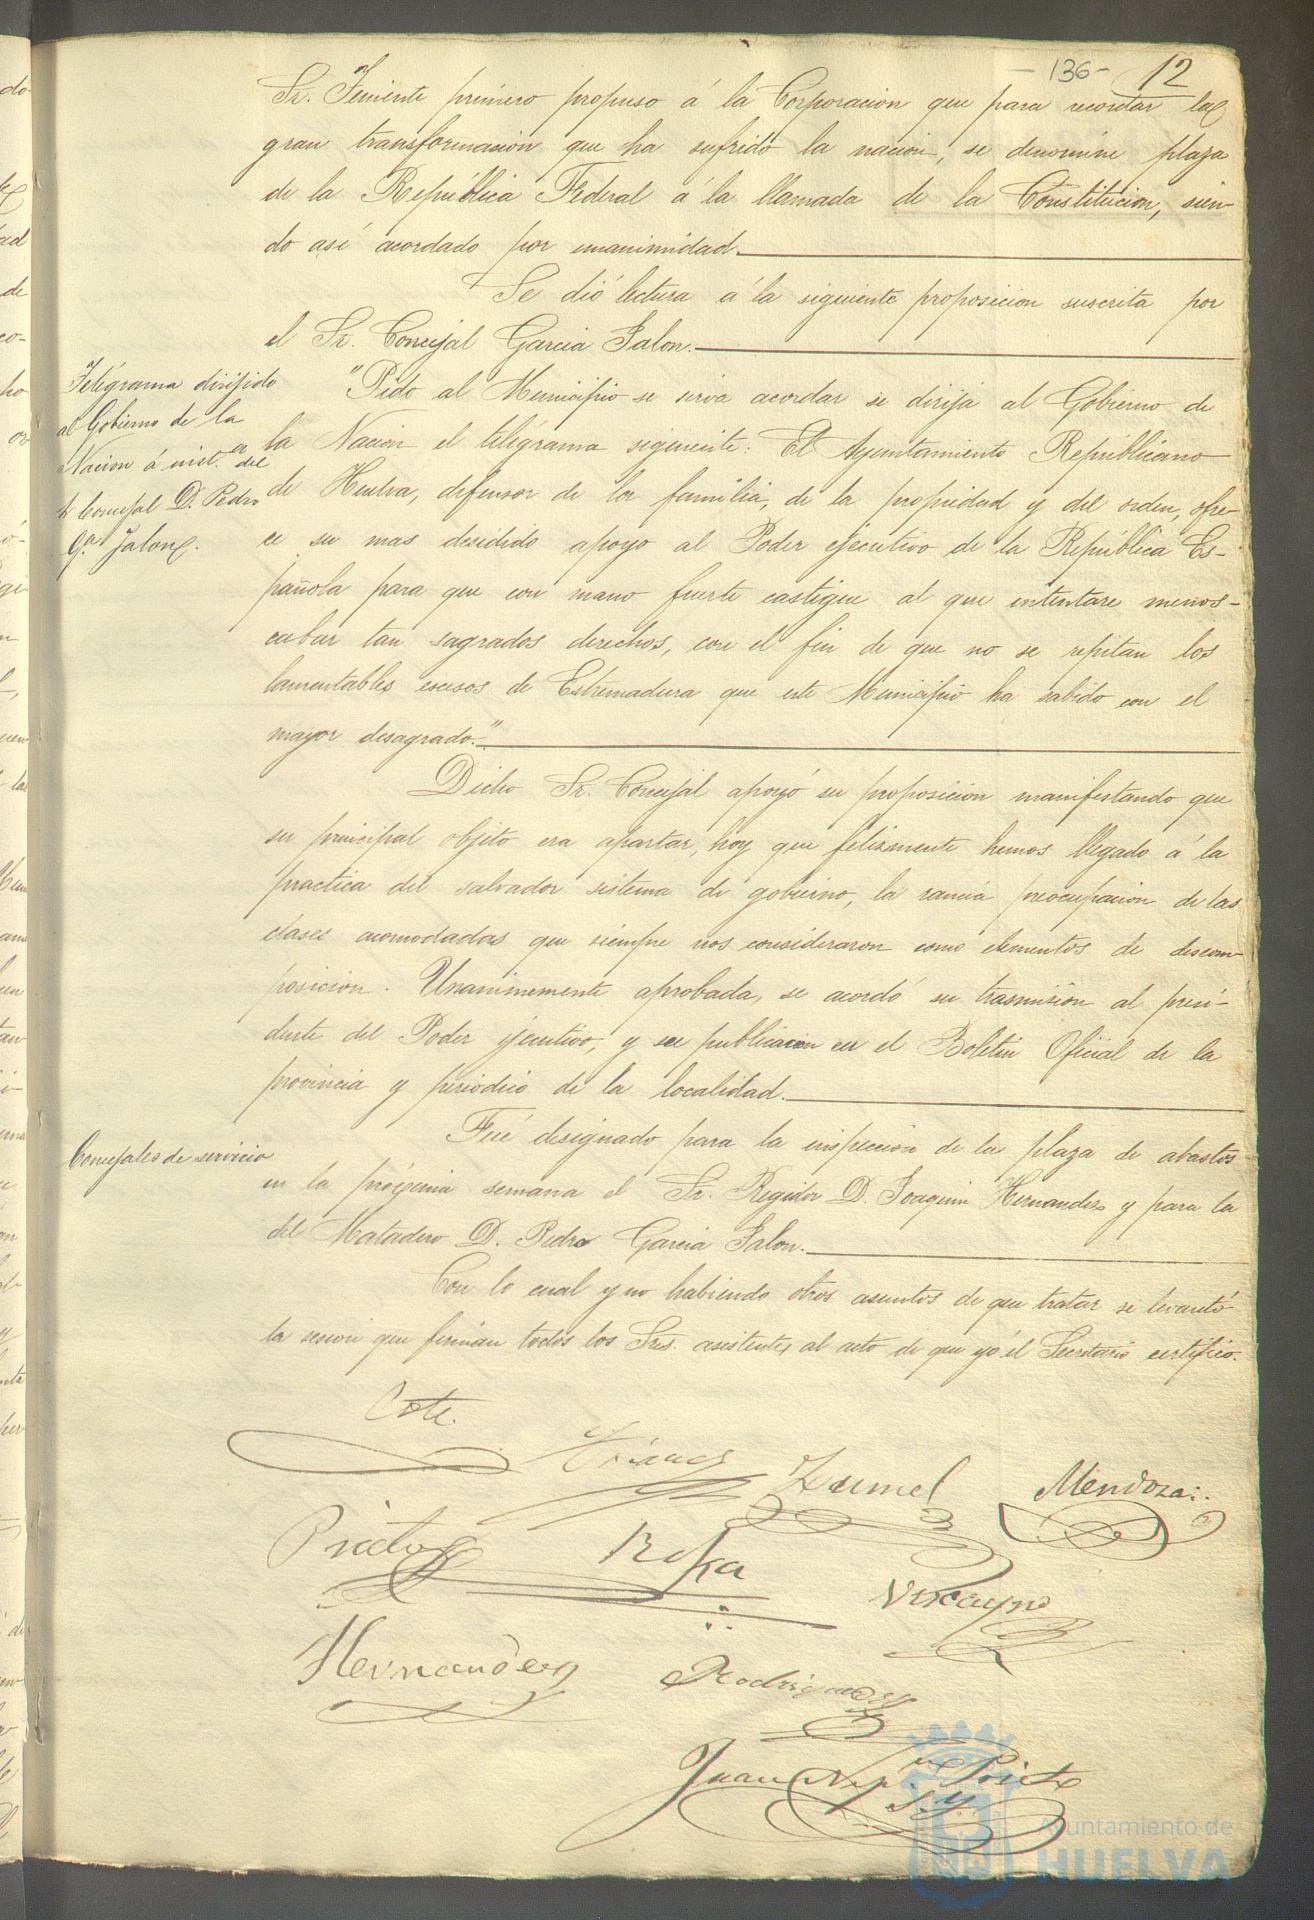 - 136 -
12
Sr. Teniente primero propuso á la Corporacion que para recordar la
gran transformacion que ha sufrido la nacion, se denomine plaza
de la República Federal á la llamada de la Constitucion, sien-
do asi acordado por unanimidad.
Se dió lectura á la siguiente proposicion suscrita por
el Sr. Concejal Garcia Jalon.
Telégrama dirijido
al Gobierno de la
Nacion á inst.a del
Concejal D. Pedro
G.a Jalon.
"Pido al Municipio se sirva acordar se dirija al Gobierno de
la Nacion el telégrama siguiente: El Ayuntamiento Republicano
de Huelva, defensor de la familia, de la propiedad y del orden, ofre-
ce su mas decidido apoyo al Poder ejecutivo de la República Es-
pañola para que con mano fuerte castigue al que intentare menos-
cabar tan sagrados derechos, con el fin de que no se repitan los
lamentables escesos de Estremadura que este Municipio ha sabido con el
mayor desagrado."
Dicho Sr. Concejal apoyó su proposicion manifestando que
su principal objeto era apartar, hoy que felizmente hemos llegado á la
practica del salvador sistema de gobierno, la rancia preocupacion de las
clases acomodadas que siempre nos consideraron como elementos de descom-
posicion. Unanimemente aprobada, se acordó su trasmision al presi-
dente del Poder ejecutivo, y su publicacion en el Boletin Oficial de la
provincia y periodico de la localidad.
Concejales de servicio
Fué designado para la inspeccion de la plaza de abastos
en la prócsima semana el Sr. Regidor D. Joaquin Hernandez y para la
del Matadero D. Pedro Garcia Jalon.
Con lo cual y no habiendo otros asuntos de que tratar se levantó
la sesion que firman todos los Sres. asistentes al acto de que yó el Secretario certifico.
Cote.
Zumel
Mendoza
Prieto
Rofa
Vizcayno
Hernandez
Rodriguez
Juan Nep.no Prieto
S. y
Ayuntamiento de
HUELVA